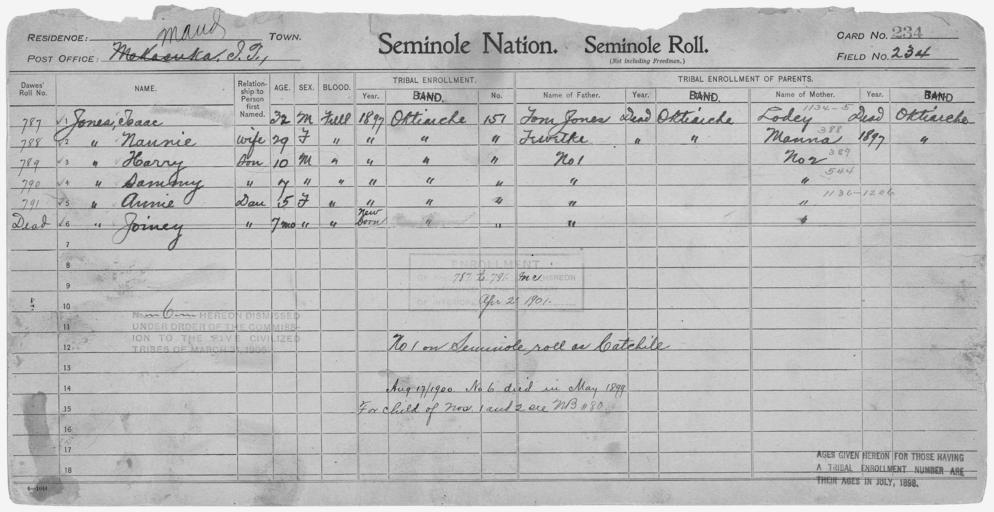 RESIDENCE: Maud TOWN.
POST OFFICE: Mekasuka, I.T.,
Seminole Nation. Seminole Roll.
(Not including Freedmen.)
CARD NO. 234
FIELD NO. 234
Dawes' Roll No. NAME. Relationship to Person first Named. AGE. SEX. BLOOD. TRIBAL ENROLLMENT. TRIBAL ENROLLMENT OF PARENTS.
Year. BAND. No. Name of Father. Year. BAND. Name of Mother. Year. BAND
1134-5
787 √1 Jones, Isaac 32 M Full 1897 Oktiarche 151 Tom Jones Dead Oktiarche Lodey Dead Oktiarche
388
788 √2 " Nannie wife 29 F " " " " " " Manna 1897 "
389
789 √3 " Harry Son 10 M " " " " No 1 No 2
544
790 √4 " Sammy " 7 " " " " " " "
1136-1206
791 √5 " Annie Dau 5 F " " " " " "
Dead √6 " Joiney " 7mo " " New Born " " " "
7
8
ENROLLMENT
9 787 to 791 Inc HEREON
10 Apr 2 1901.
No 6 HEREON DISMISSED
11 UNDER ORDER OF THE COMMISS-
ION TO THE FIVE CIVILIZED
12 No 1 on Seminole roll as Catchile
TRIBES OF MARCH 31, 1905
13
14 Aug 17/1900 No 6 died in May 1899
15 For child of Nos. 1 and 2 see NB #80
16
17
18
AGES GIVEN HEREON FOR THOSE HAVING
A TRIBAL ENROLLMENT NUMBER ARE
THEIR AGES IN JULY, 1898.